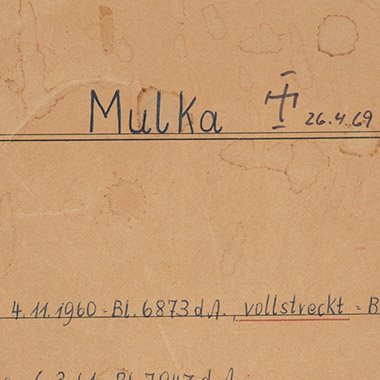 Mulka † 26.4.69
4.11.1960 - Bl. 6873 d.A., vollstreckt - B
6.3.61 Bl. 7947 d.A.